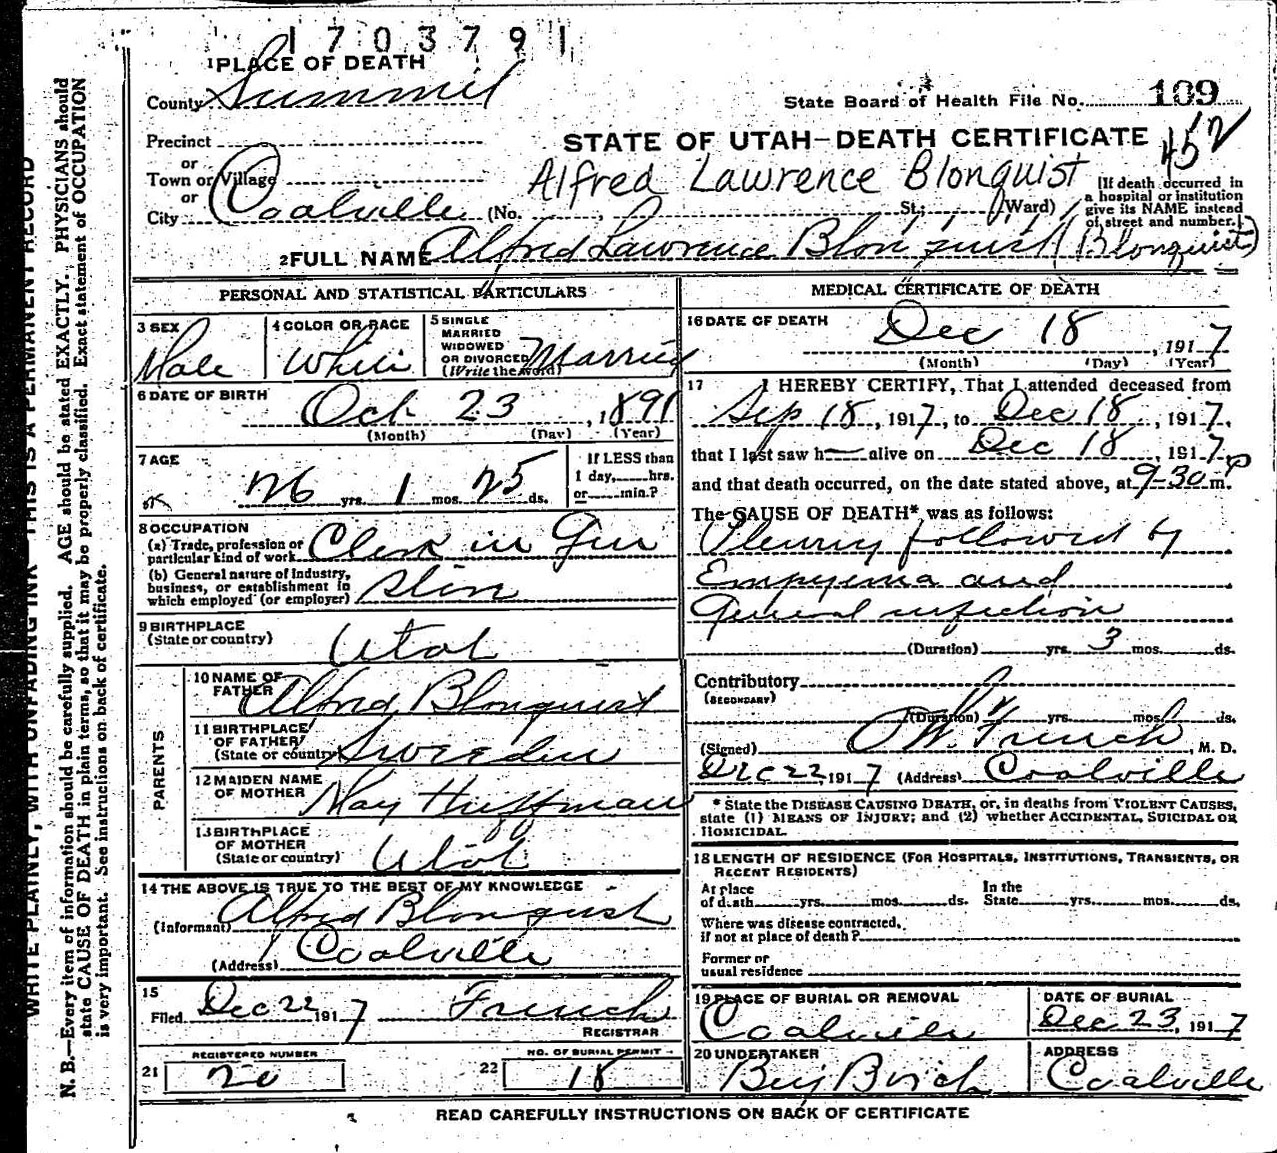 1703791
1 PLACE OF DEATH
County Summit
State Board of Health File No. 109
Precinct
STATE OF UTAH—DEATH CERTIFICATE
452
or
Town or Village
Alfred Lawrence Blonquist
or
City Coalville (No. St.; Ward)
[If death occurred in
a hospital or institution
give its NAME instead
of street and number.]
2 FULL NAME Alfred Lawrence Blonquist (Blonquist)
PERSONAL AND STATISTICAL PARTICULARS
3 SEX
Male
4 COLOR OR RACE
White
5 SINGLE
MARRIED
WIDOWED
OR DIVORCED
(Write the word)
Married
6 DATE OF BIRTH
Oct 23, 1891
(Month) (Day) (Year)
7 AGE
26 yrs. 1 mos. 25 ds.
If LESS than
1 day, hrs.
or min.?
8 OCCUPATION
(a) Trade, profession or
particular kind of work Clerk in Gen
(b) General nature of industry,
business, or establishment in
which employed (or employer) Store
9 BIRTHPLACE
(State or country) Utah
PARENTS
10 NAME OF
FATHER Alfred Blonquist
11 BIRTHPLACE
OF FATHER
(State or country) Sweden
12 MAIDEN NAME
OF MOTHER May Huffman
13 BIRTHPLACE
OF MOTHER
(State or country) Utah
14 THE ABOVE IS TRUE TO THE BEST OF MY KNOWLEDGE
(Informant) Alfred Blonquist
(Address) Coalville
15
Filed Dec 22 1917 French
REGISTRAR
REGISTERED NUMBER
21 20
NO. OF BURIAL PERMIT
22 18
MEDICAL CERTIFICATE OF DEATH
16 DATE OF DEATH
Dec 18, 1917
(Month) (Day) (Year)
17 I HEREBY CERTIFY, That I attended deceased from
Sep 18, 1917, to Dec 18, 1917,
that I last saw h— alive on Dec 18, 1917,
and that death occurred, on the date stated above, at 9-30 P m.
The CAUSE OF DEATH* was as follows:
Pleurisy followed by
Empyema and
General infection
(Duration) yrs. 3 mos. ds.
Contributory
(SECONDARY)
(Duration) yrs. mos. ds.
(Signed) French, M. D.
Dec 22, 1917 (Address) Coalville
* State the DISEASE CAUSING DEATH, or, in deaths from VIOLENT CAUSES,
state (1) MEANS OF INJURY; and (2) whether ACCIDENTAL, SUICIDAL OR
HOMICIDAL.
18 LENGTH OF RESIDENCE (FOR HOSPITALS, INSTITUTIONS, TRANSIENTS, OR
RECENT RESIDENTS)
At place
of death yrs. mos. ds.
In the
State yrs. mos. ds.
Where was disease contracted,
if not at place of death?
Former or
usual residence
19 PLACE OF BURIAL OR REMOVAL
Coalville
DATE OF BURIAL
Dec 23, 1917
20 UNDERTAKER
ADDRESS
Coalville
READ CAREFULLY INSTRUCTIONS ON BACK OF CERTIFICATE
WRITE PLAINLY, WITH UNFADING INK—THIS IS A PERMANENT RECORD
N. B.—Every item of information should be carefully supplied. AGE should be stated EXACTLY. PHYSICIANS should
state CAUSE OF DEATH in plain terms, so that it may be properly classified. Exact statement of OCCUPATION
is very important. See instructions on back of certificate.